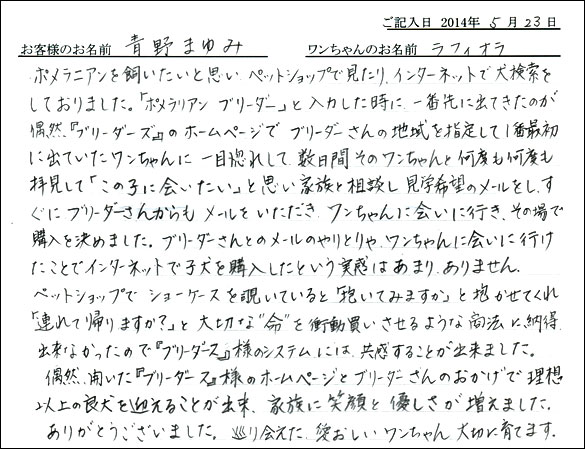 ご記入日 2014年 5月 23日
お客様のお名前 青野まゆみ ワンちゃんのお名前 ラフィオラ
ポメラニアンを飼いたいと思い ペットショップで見たり、インターネットで犬検索を
しておりました。「ポメラリアン ブリーダー」と入力した時に、一番先に出てきたのが
偶然、『ブリーダーズ』のホームページで ブリーダーさんの地域を指定して1番最初
に出ていたワンちゃんに 一目惚れして、数日間そのワンちゃんと何度も何度も
拝見して「この子に会いたい」と思い家族と相談し 見学希望のメールをし、す
ぐにブリーダーさんからも メールをいただき、ワンちゃんに会いに行き、その場で
購入を決めました。ブリーダーさんとのメールのやりとりや、ワンちゃんに会いに行け
たことでインターネットで子犬を購入したという実感はあまり、ありません。
ペットショップで ショーケースを覗いていると「抱いてみますか」と抱かせてくれ
「連れて帰りますか?」と 大切な"命"を衝動買いさせるような商法に、納得
出来なかったので『ブリーダーズ』様のシステムには、共感することが出来ました。
偶然、開いた『ブリーダーズ』様のホームページとブリーダーさんのおかげで理想
以上の良犬を迎えることが出来、家族に笑顔と優しさが増えました。
ありがとうございました。巡り会えた、愛おしいワンちゃん 大切に育てます。